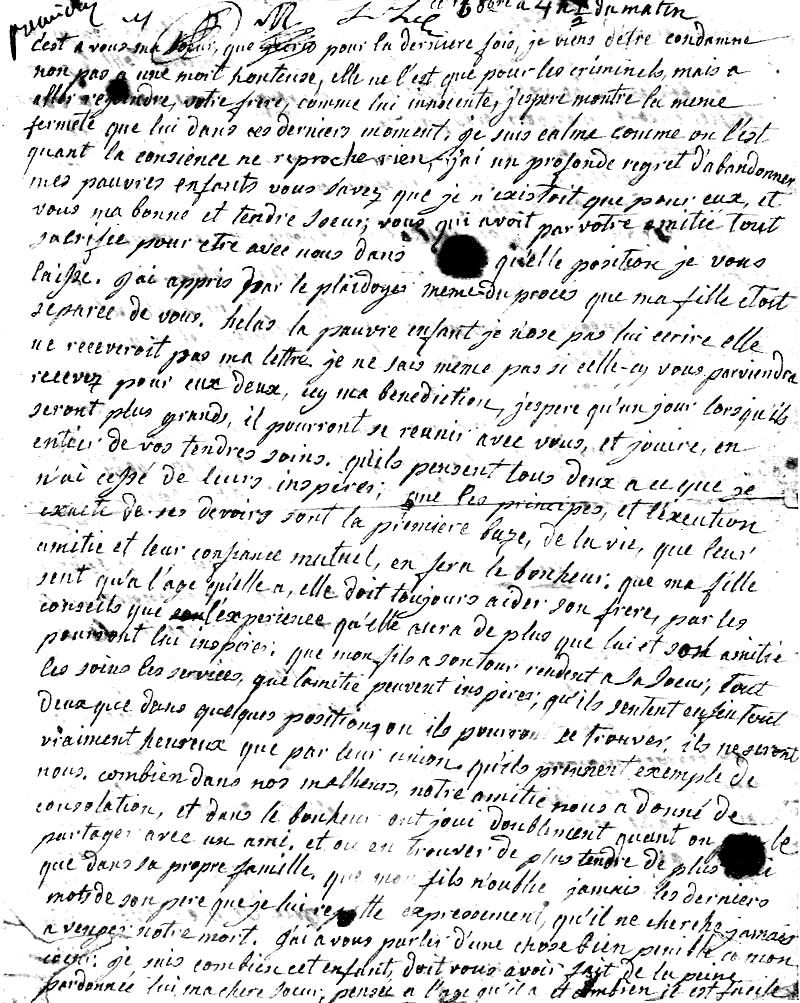 ce 16 8bre a 4 h 1/2 du matin
C'est a vous ma soeur, que j'ecris pour la derniere fois, je viens d'etre condamne
non pas a une mort honteuse, elle ne l'est que pour les criminels, mais a
aller rejoindre, votre frere, comme lui innocente, j'espere montre la meme
fermeté que lui dans ces derniers moment, je suis calme comme on l'est
quant la consience ne reproche rien, j'ai un profonde regret d'abandonner
mes pauvres enfants vous savez que je n'existoit que pour eux, et
vous ma bonne et tendre soeur, vous qui avoit par votre amitié tout
sacrifée pour etre avec nous dans qu'elle position je vous
laisse. J'ai appris par le plaidoyer meme du procès que ma fille etoit
separée de vous. helas la pauvre enfant je n'ose pas lui ecrire elle
ne receveroit pas ma lettre je ne sais meme pas si celle-cy vous parviendra
recevez pour eux deux, icy ma benediction, j'espere qu'un jour lorsqu'ils
seront plus grands, il pourront se reunir avec vous, et jouire, en
entier de vos tendres soins. qu'ils pensent tous deux a ce que je
n'ai cessé de leurs inspirer; que les principes, et l'execution
exacte de ses devoirs sont la premiere baze, de la vie, que leur
amitié et leur confiance mutuel, en fera le bonheur. que ma fille
sent qu'a l'age qu'elle a, elle doit toujours aider son frere, par les
conseils que l'experience qu'elle aura de plus que lui et son amitié
pourront lui inspirer. que mon fils a son tour rendent a sa soeur, tout
les soins les services, que l'amitié peuvent inspirer; qu'ils sentent enfin tout
deux que dans quelques positions ou ils pourront se trouver, ils ne seront
vraiment heureux que par leur union. qu'ils prennent exemple de
nous. combien dans nos malheurs, notre amitié nous a donné de
consolation, et dans le bonheur ont joui doublement quant on le
partager avec un ami. et ou en trouver de plus tendre de plus
que dans sa propre famille. que mon fils n'oublie jamais les derniers
mots de son pere que je lui repette expressement, qu'il ne cherche jamais
a venger notre mort. J'ai a vous parler d'une chose bien penible a mon
coeur. je sais combien cet enfant, doit vous avoir fait de la peine
pardonnée lui ma chere soeur, pensée a l'age qu'il a et combien il est facile